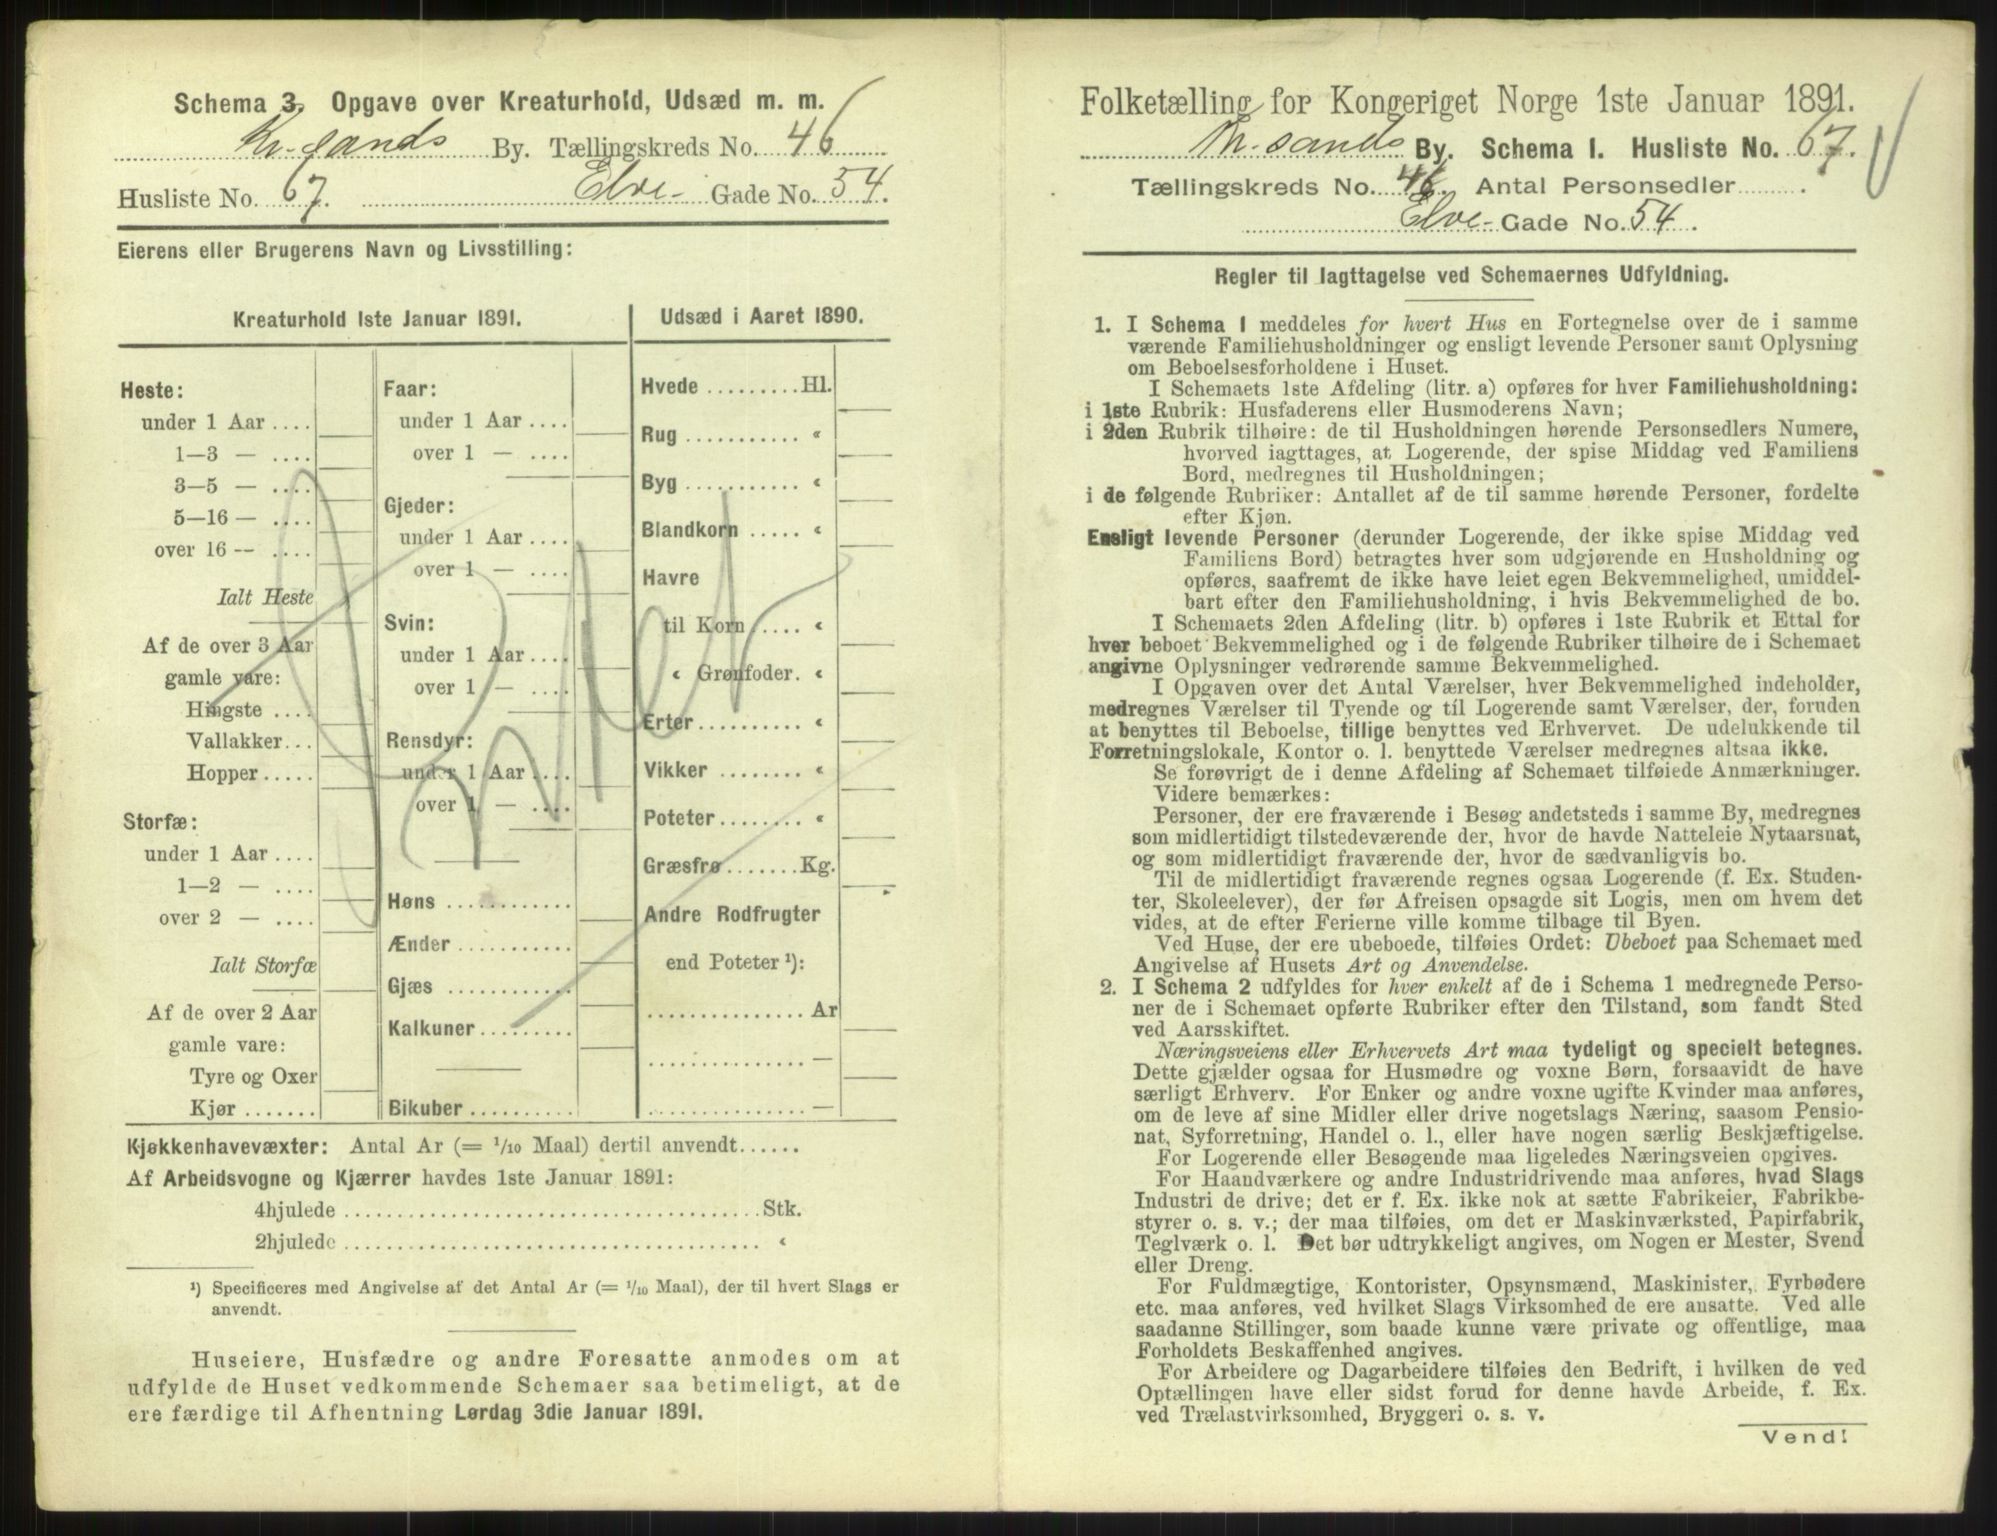 Schema 3. Opgave over Kreaturhold, Udsæd m. m.
Kr.sands By. Tællingskreds No. 46
Husliste No. 67. Elve- Gade No. 54.
Eierens eller Brugerens Navn og Livsstilling:
Kreaturhold 1ste Januar 1891.
Heste:
under 1 Aar ....
1—3 — ....
3—5 — ....
5—16 — ....
over 16 -- ....
Ialt Heste
Af de over 3 Aar
gamle vare:
Hingste ....
Vallakker...
Hopper.....
Storfæ:
under 1 Aar ....
1—2 — ....
over 2 — ....
Ialt Storfæ
Af de over 2 Aar
gamle vare:
Tyre og Oxer
Kjør .......
Faar:
under 1 Aar ....
over 1 — ....
Gjeder:
under 1 Aar ....
over 1 — ....
Svin:
under 1 Aar ....
over 1 — ....
Rensdyr:
under 1 Aar ....
over 1 — ....
Høns ............
Ænder ...........
Gjæs ............
Kalkuner.........
Bikuber ..........
Udsæd i Aaret 1890.
Hvede .........Hl.
Rug ........... “
Byg ........... “
Blandkorn ..... “
Havre
til Korn .... “
“ Grønfoder. “
Erter.......... “
Vikker ........ “
Poteter........ “
Græsfrø .......Kg.
Andre Rodfrugter
end Poteter ¹):
............... Ar
............... —
............... —
Kjøkkenhavevæxter: Antal Ar (= 1/10 Maal) dertil anvendt......
Af Arbeidsvogne og Kjærrer havdes 1ste Januar 1891:
4hjulede ........................................Stk.
2hjulede ........................................ “
¹) Specificeres med Angivelse af det Antal Ar (= 1/10 Maal), der til hvert Slags er
anvendt.
Huseiere, Husfædre og andre Foresatte anmodes om at
udfylde de Huset vedkommende Schemaer saa betimeligt, at de
ere færdige til Afhentning Lørdag 3die Januar 1891.
Folketælling for Kongeriget Norge 1ste Januar 1891.
Kr.sands By. Schema I. Husliste No. 67.
Tællingskreds No. 46. Antal Personsedler........
Elve- Gade No. 54.
Regler til Iagttagelse ved Schemaernes Udfyldning.
1. I Schema 1 meddeles for hvert Hus en Fortegnelse over de i samme
værende Familiehusholdninger og ensligt levende Personer samt Oplysning
om Beboelsesforholdene i Huset.
I Schemaets 1ste Afdeling (litr. a) opføres for hver Familiehusholdning:
i 1ste Rubrik: Husfaderens eller Husmoderens Navn;
i 2den Rubrik tilhøire: de til Husholdningen hørende Personsedlers Numere,
hvorved iagttages, at Logerende, der spise Middag ved Familiens
Bord, medregnes til Husholdningen;
i de følgende Rubriker: Antallet af de til samme hørende Personer, fordelte
efter Kjøn.
Ensligt levende Personer (derunder Logerende, der ikke spise Middag ved
Familiens Bord) betragtes hver som udgjørende en Husholdning og
opføres, saafremt de ikke have leiet egen Bekvemmelighed, umiddel-
bart efter den Familiehusholdning, i hvis Bekvemmelighed de bo.
I Schemaets 2den Afdeling (litr. b) opføres i 1ste Rubrik et Ettal for
hver beboet Bekvemmelighed og i de følgende Rubriker tilhøire de i Schemaet
angivne Oplysninger vedrørende samme Bekvemmelighed.
I Opgaven over det Antal Værelser, hver Bekvemmelighed indeholder,
medregnes Værelser til Tyende og til Logerende samt Værelser, der, foruden
at benyttes til Beboelse, tillige benyttes ved Erhvervet. De udelukkende til
Forretningslokale, Kontor o. l. benyttede Værelser medregnes altsaa ikke.
Se forøvrigt de i denne Afdeling af Schemaet tilføiede Anmærkninger.
Videre bemærkes:
Personer, der ere fraværende i Besøg andetsteds i samme By, medregnes
som midlertidigt tilstedeværende der, hvor de havde Natteleie Nytaarsnat,
og som midlertidigt fraværende der, hvor de sædvanligvis bo.
Til de midlertidigt fraværende regnes ogsaa Logerende (f. Ex. Studen-
ter, Skoleelever), der før Afreisen opsagde sit Logis, men om hvem det
vides, at de efter Ferierne ville komme tilbage til Byen.
Ved Huse, der ere ubeboede, tilføies Ordet: Ubeboet paa Schemaet med
Angivelse af Husets Art og Anvendelse.
2. I Schema 2 udfyldes for hver enkelt af de i Schema 1 medregnede Perso-
ner de i Schemaet opførte Rubriker efter den Tilstand, som fandt Sted
ved Aarsskiftet.
Næringsveiens eller Erhvervets Art maa tydeligt og specielt betegnes.
Dette gjælder ogsaa for Husmødre og voxne Børn, forsaavidt de have
særligt Erhverv. For Enker og andre voxne ugifte Kvinder maa anføres,
om de leve af sine Midler eller drive nogetslags Næring, saasom Pensio-
nat, Syforretning, Handel o. l., eller have nogen særlig Beskjæftigelse.
For Logerende eller Besøgende maa ligeledes Næringsveien opgives.
For Haandværkere og andre Industridrivende maa anføres, hvad Slags
Industri de drive; det er f. Ex. ikke nok at sætte Fabrikeier, Fabrikbe-
styrer o. s. v.; der maa tilføies, om det er Maskinværksted, Papirfabrik,
Teglværk o. l. Det bør udtrykkeligt angives, om Nogen er Mester, Svend
eller Dreng.
For Fuldmægtige, Kontorister, Opsynsmænd, Maskinister, Fyrbødere
etc. maa anføres, ved hvilket Slags Virksomhed de ere ansatte. Ved alle
saadanne Stillinger, som baade kunne være private og offentlige, maa
Forholdets Beskaffenhed angives.
For Arbeidere og Dagarbeidere tilføies den Bedrift, i hvilken de ved
Optællingen have eller sidst forud for denne havde Arbeide, f. Ex.
ved Trælastvirksomhed, Bryggeri o. s. v.
Vend!